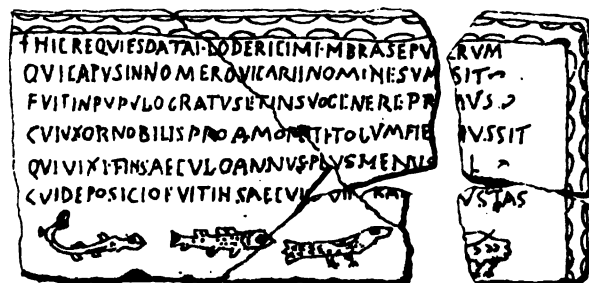 † HIC REQUIES DATA I·LODERICI M·MBRA SEPU CRUM
QUI CAPUS IN NOMERO VICARII NOMINE SUM SIT
FVIT IN PVPVLO GRATVS ET IN SVO GENERE PR MVS
CVI VXOR NOBILIS PRO AMO TITOLVM FIE IVSSIT
QVI VIXIT IN SAECVLO ANNVS PLVS MENVS L
CVI DEPOSICIO FVIT IN SAECVL VII KA VSTAS